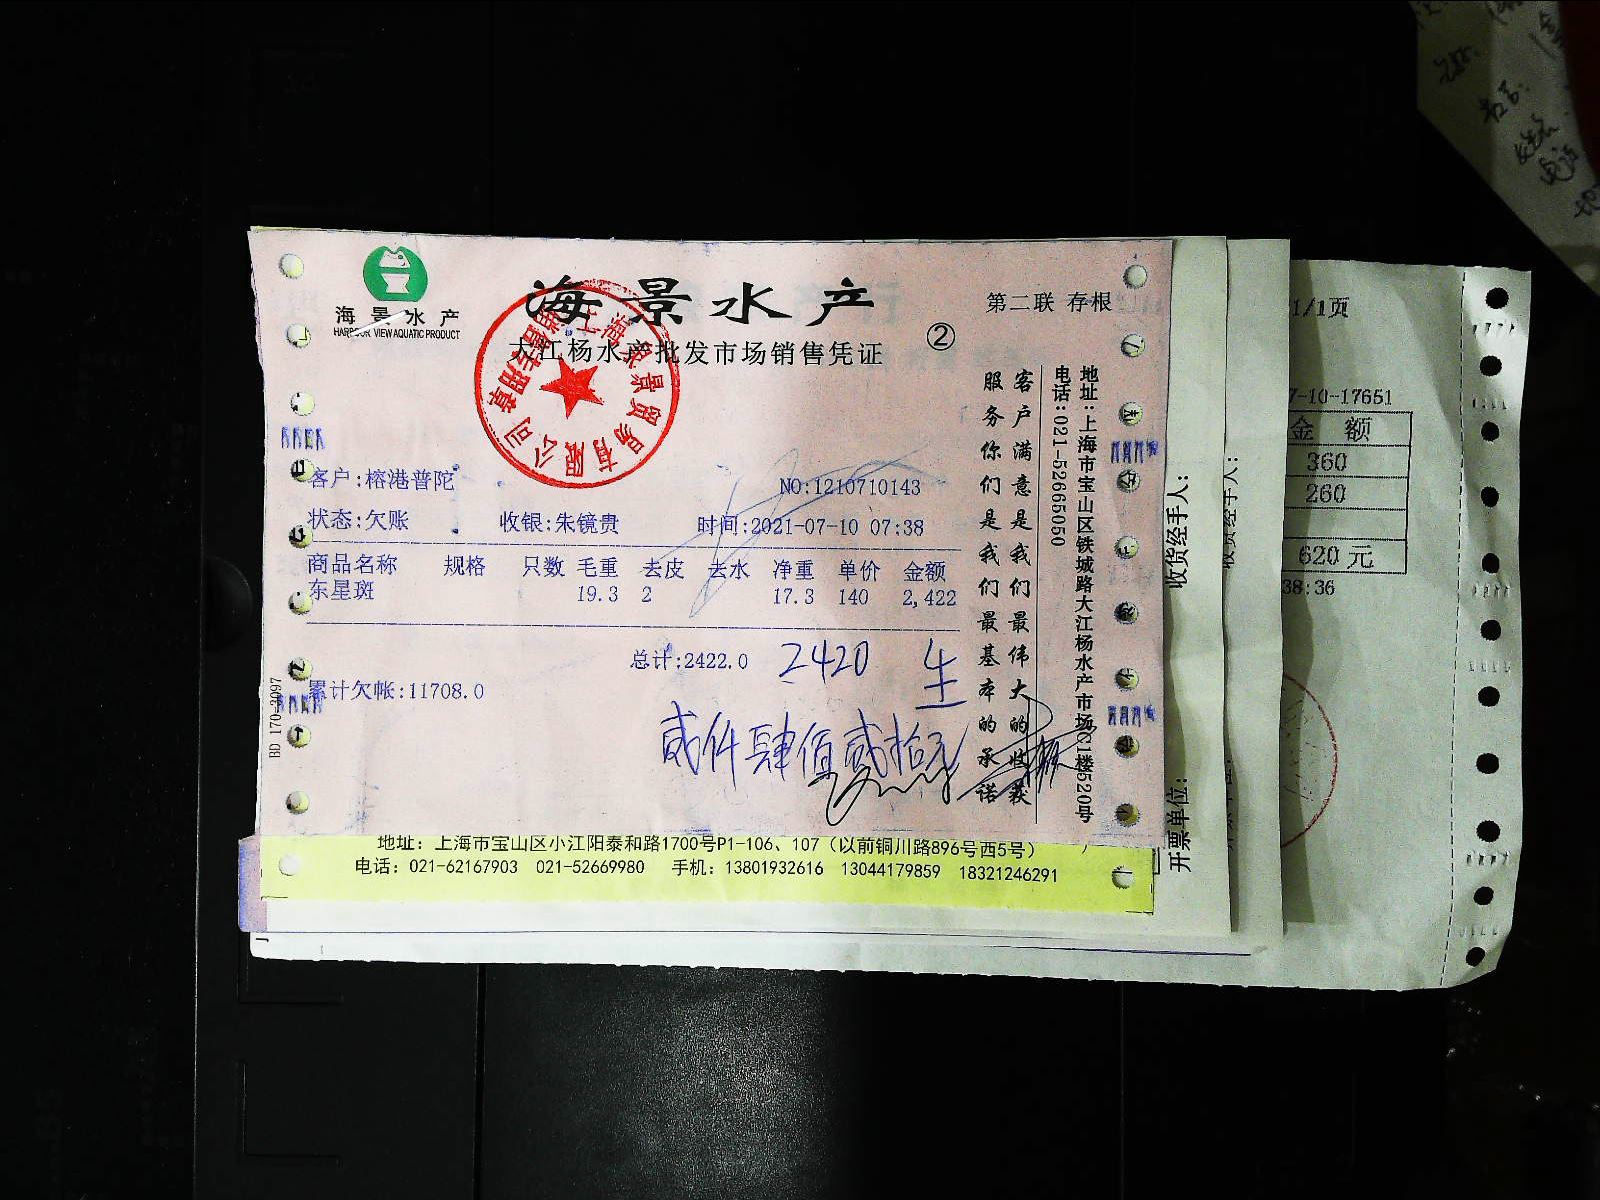 海景水产
HARBOUR VIEW AQUATIC PRODUCT
海景水产
大江杨水产批发市场销售凭证
②
第二联 存根
客户:榕港普陀
NO:1210710143
状态:欠账 收银:朱镜贵 时间:2021-07-10 07:38
商品名称 规格 只数 毛重 去皮 去水 净重 单价 金额
东星斑 19.3 2 17.3 140 2,422
总计:2422.0 2420 生
累计欠帐:11708.0
贰仟肆佰贰拾元
HD 170-3097
客户满意是我们最伟大的收获
服务你们是我们最基本的承诺
地址:上海市宝山区铁城路大江杨水产市场C1楼520号
电话:021-52665050
地址：上海市宝山区小江阳泰和路1700号P1-106、107（以前铜川路896号西5号）
电话：021-62167903 021-52669980 手机：13801932616 13044179859 18321246291
收货经手人:
开票单位:
1/1页
7-10-17651
金 额
360
260
620元
38:36